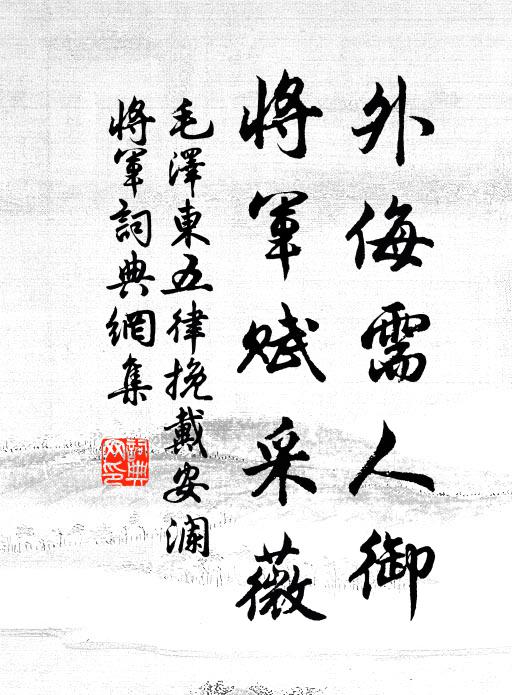 外侮需人御
將軍賦采薇
毛澤東五律挽戴安瀾
將軍詞典網集
詞典
网印